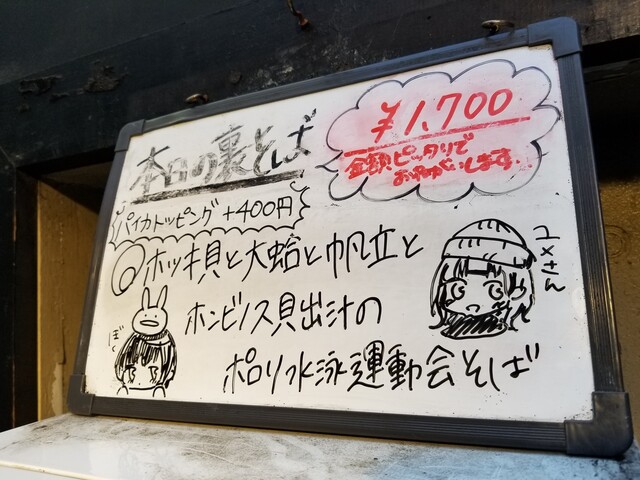 本日の裏そば
¥1,700
金額ピッタリで
おねがいします。
パイカトッピング +400円
◎ホッキ貝と大蛤と帆立と
ホンビノス貝出汁の
ポロリ水泳運動会そば
ユメさん
ぼく